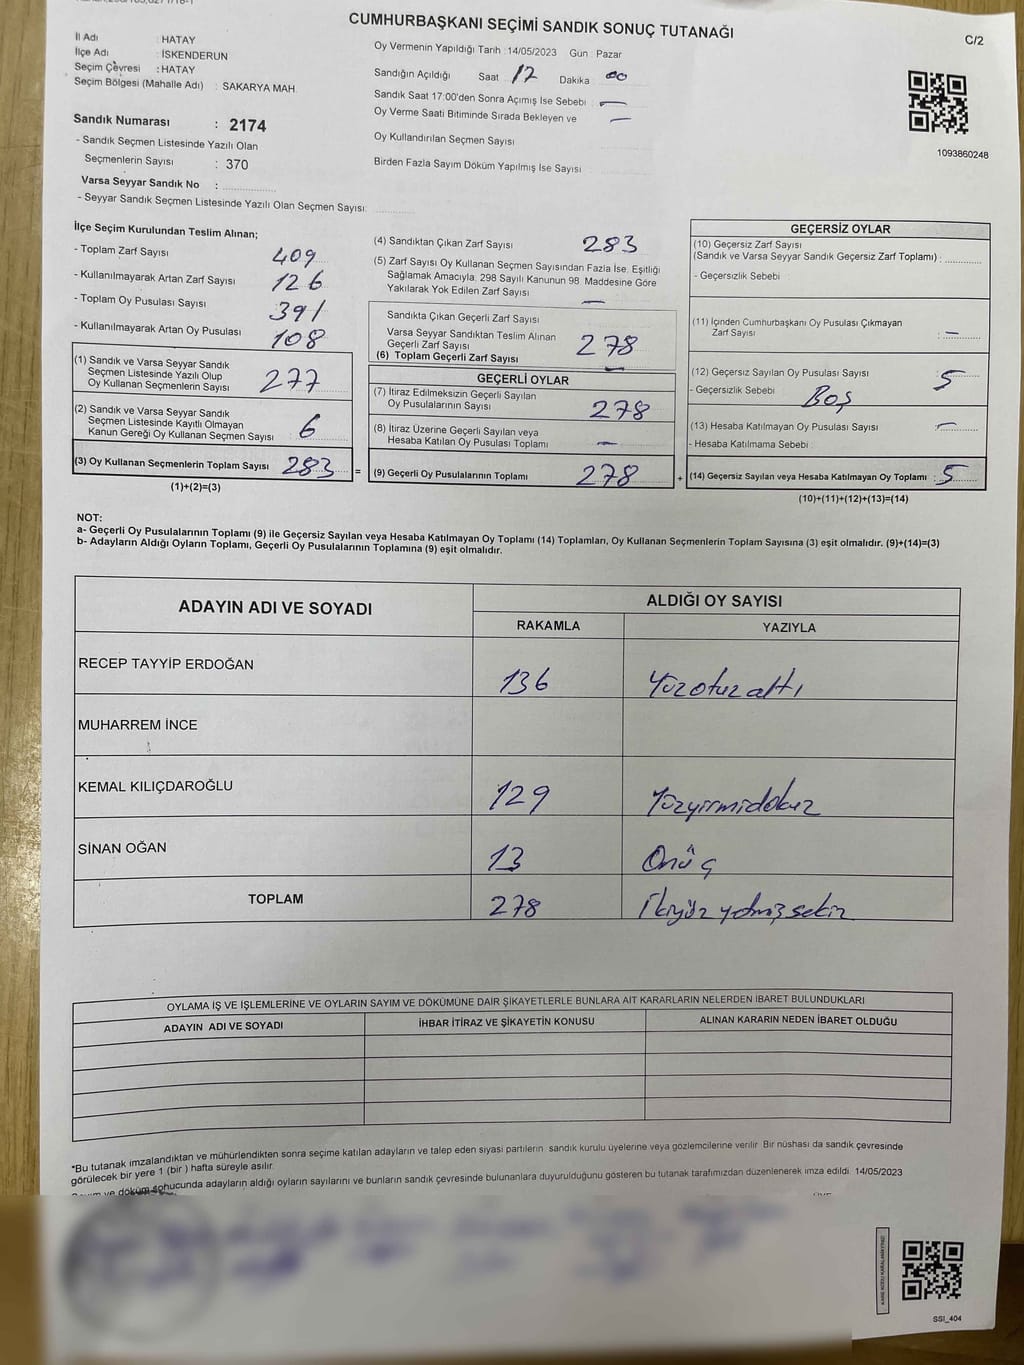 CUMHURBAŞKANI SEÇİMİ SANDIK SONUÇ TUTANAĞI
C/2
İl Adı : HATAY
İlçe Adı : İSKENDERUN
Seçim Çevresi : HATAY
Seçim Bölgesi (Mahalle Adı) : SAKARYA MAH.
Sandık Numarası : 2174
- Sandık Seçmen Listesinde Yazılı Olan
Seçmenlerin Sayısı : 370
Varsa Seyyar Sandık No :
- Seyyar Sandık Seçmen Listesinde Yazılı Olan Seçmen Sayısı:
Oy Vermenin Yapıldığı Tarih : 14/05/2023 Gün : Pazar
Sandığın Açıldığı Saat 17 Dakika 00
Sandık Saat 17:00'den Sonra Açımış İse Sebebi : —
Oy Verme Saati Bitiminde Sırada Bekleyen ve —
Oy Kullandırılan Seçmen Sayısı
Birden Fazla Sayım Döküm Yapılmış İse Sayısı :
1093860248
İlçe Seçim Kurulundan Teslim Alınan;
- Toplam Zarf Sayısı 409
- Kullanılmayarak Artan Zarf Sayısı 126
- Toplam Oy Pusulası Sayısı 391
- Kullanılmayarak Artan Oy Pusulası 108
(1) Sandık ve Varsa Seyyar Sandık
Seçmen Listesinde Yazılı Olup
Oy Kullanan Seçmenlerin Sayısı 277
(2) Sandık ve Varsa Seyyar Sandık
Seçmen Listesinde Kayıtlı Olmayan
Kanun Gereği Oy Kullanan Seçmen Sayısı 6
(3) Oy Kullanan Seçmenlerin Toplam Sayısı 283 =
(1)+(2)=(3)
(4) Sandıktan Çıkan Zarf Sayısı 283
(5) Zarf Sayısı Oy Kullanan Seçmen Sayısından Fazla İse, Eşitliği
Sağlamak Amacıyla, 298 Sayılı Kanunun 98. Maddesine Göre
Yakılarak Yok Edilen Zarf Sayısı —
Sandıkta Çıkan Geçerli Zarf Sayısı
Varsa Seyyar Sandıktan Teslim Alınan
Geçerli Zarf Sayısı
(6) Toplam Geçerli Zarf Sayısı 278
GEÇERLİ OYLAR
(7) İtiraz Edilmeksizin Geçerli Sayılan
Oy Pusulalarının Sayısı 278
(8) İtiraz Üzerine Geçerli Sayılan veya
Hesaba Katılan Oy Pusulası Toplamı —
(9) Geçerli Oy Pusulalarının Toplamı 278 +
GEÇERSİZ OYLAR
(10) Geçersiz Zarf Sayısı
(Sandık ve Varsa Seyyar Sandık Geçersiz Zarf Toplamı) :
- Geçersizlik Sebebi :
(11) İçinden Cumhurbaşkanı Oy Pusulası Çıkmayan
Zarf Sayısı : —
(12) Geçersiz Sayılan Oy Pusulası Sayısı : 5
- Geçersizlik Sebebi : Boş
(13) Hesaba Katılmayan Oy Pusulası Sayısı : —
- Hesaba Katılmama Sebebi :
(14) Geçersiz Sayılan veya Hesaba Katılmayan Oy Toplamı : 5
(10)+(11)+(12)+(13)=(14)
NOT:
a- Geçerli Oy Pusulalarının Toplamı (9) ile Geçersiz Sayılan veya Hesaba Katılmayan Oy Toplamı (14) Toplamları, Oy Kullanan Seçmenlerin Toplam Sayısına (3) eşit olmalıdır. (9)+(14)=(3)
b- Adayların Aldığı Oyların Toplamı, Geçerli Oy Pusulalarının Toplamına (9) eşit olmalıdır.
ADAYIN ADI VE SOYADI ALDIĞI OY SAYISI
RAKAMLA YAZIYLA
RECEP TAYYİP ERDOĞAN 136 Yüzotuzaltı
MUHARREM İNCE
KEMAL KILIÇDAROĞLU 129 Yüzyirmidokuz
SİNAN OĞAN 13 Onüç
TOPLAM 278 İkiyüz yetmişsekiz
OYLAMA İŞ VE İŞLEMLERİNE VE OYLARIN SAYIM VE DÖKÜMÜNE DAİR ŞİKAYETLERLE BUNLARA AİT KARARLARIN NELERDEN İBARET BULUNDUKLARI
ADAYIN ADI VE SOYADI İHBAR İTİRAZ VE ŞİKAYETİN KONUSU ALINAN KARARIN NEDEN İBARET OLDUĞU
*Bu tutanak imzalandıktan ve mühürlendikten sonra seçime katılan adayların ve talep eden siyasi partilerin sandık kurulu üyelerine veya gözlemcilerine verilir. Bir nüshası da sandık çevresinde
görülecek bir yere 1 (bir) hafta süreyle asılır.
Sayım ve döküm sonucunda adayların aldığı oyların sayılarını ve bunların sandık çevresinde bulunanlara duyurulduğunu gösteren bu tutanak tarafımızdan düzenlenerek imza edildi. 14/05/2023
SSI_404